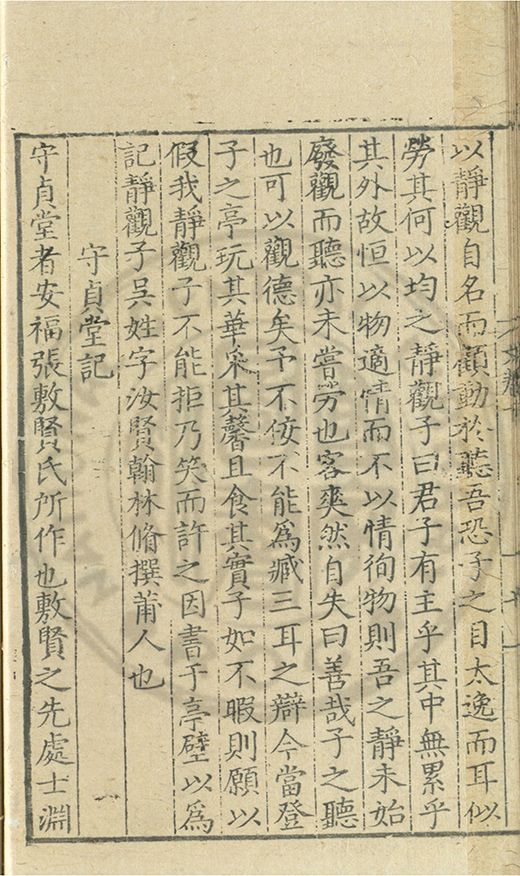 以靜觀自名而顧動於聽吾恐子之目太逸而耳似
勞其何以均之靜觀子曰君子有主乎其中無累乎
其外故恒以物適情而不以情徇物則吾之靜未始
廢觀而聽亦未嘗勞也客爽然自失曰善哉子之聽
也可以觀德矣予不佞不能爲臧三耳之辯今當登
子之亭玩其華采其馨且食其實子如不暇則願以
假我靜觀子不能拒乃笑而許之因書于亭壁以爲
記靜觀子吳姓字汝賢翰林脩撰莆人也
守貞堂記
守貞堂者安福張敷賢氏所作也敷賢之先處士淵